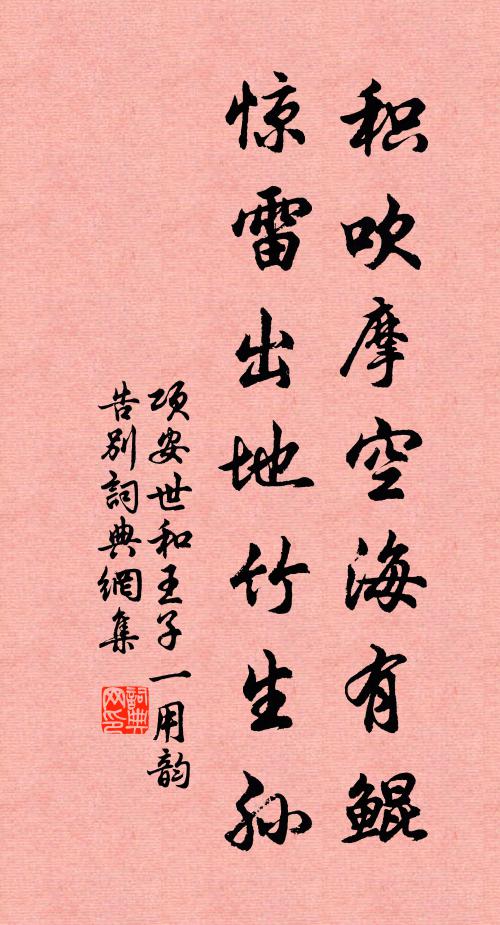 积吹摩空海有鲲
惊雷出地竹生孙
项安世和王子一用韵
告别詞典網集
詞典网印